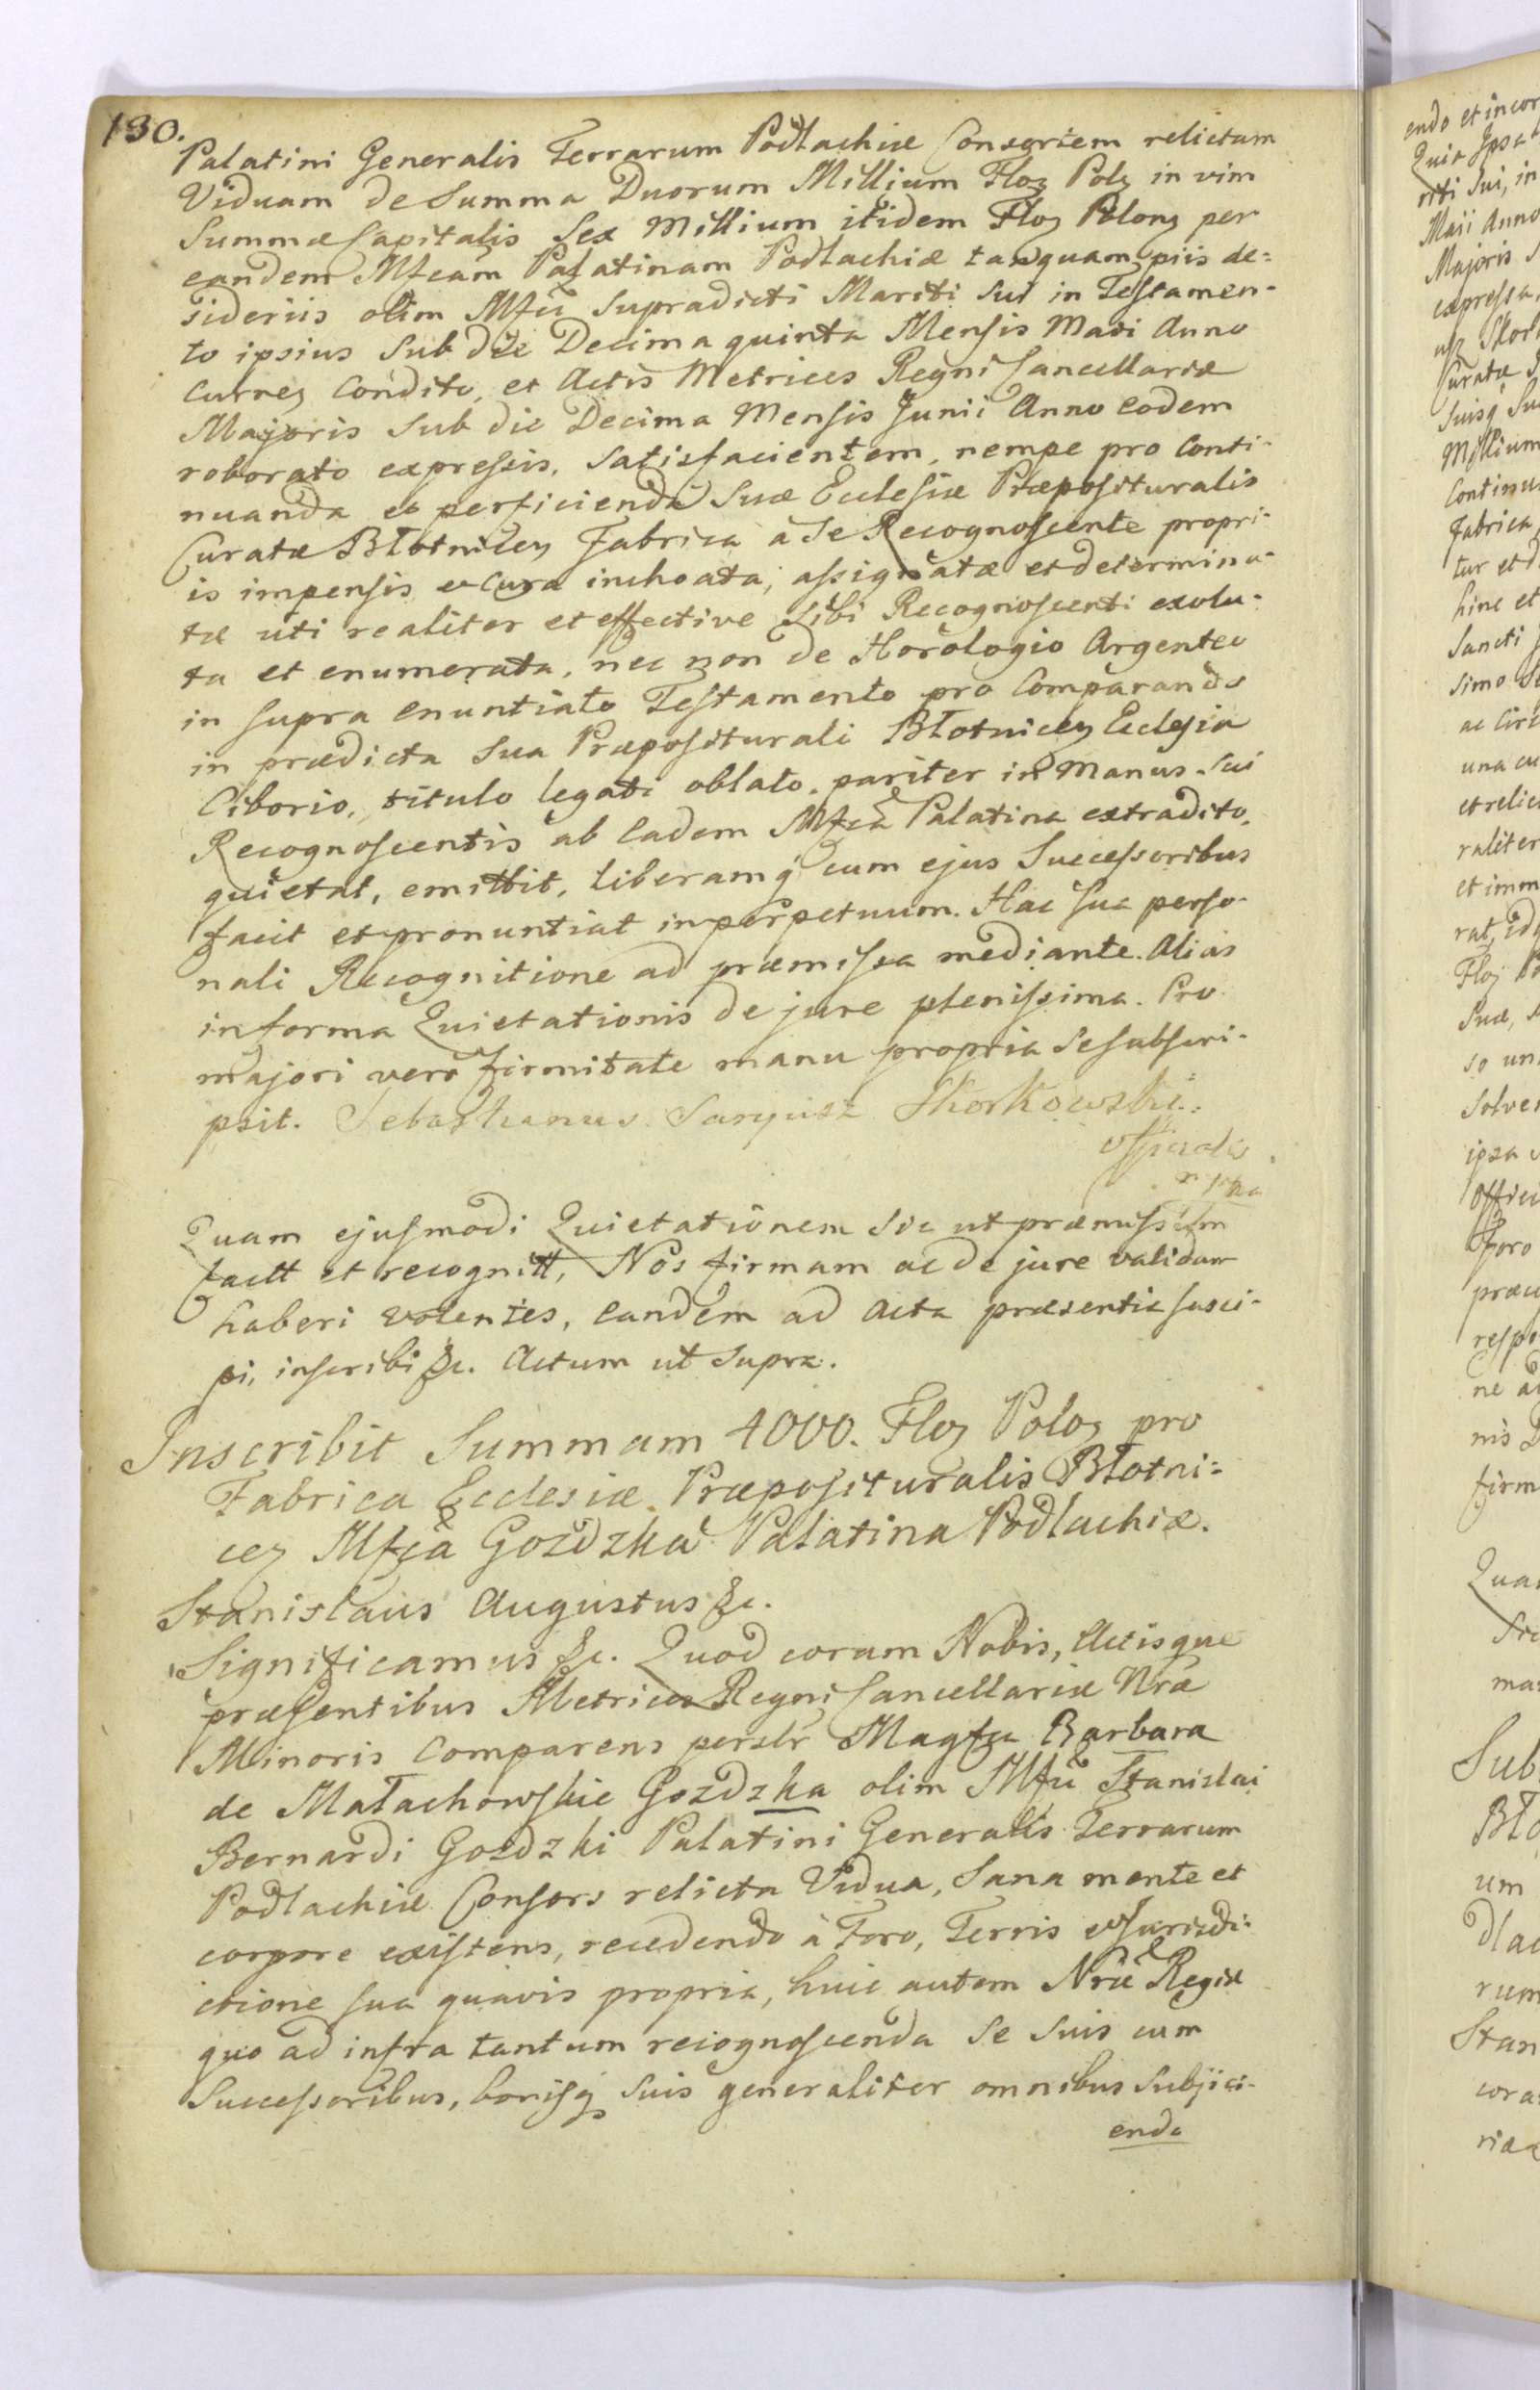 130.
Palatini Generalis Terrarum Podlachiæ Consortem relictam
Viduam de Summa Duorum Millium Floꝫ Polꝫ in vim
Summæ Capitalis Sex Millium itidem Floꝫ Polonꝫ per
eandem Mfcam Palatinam Podlachiæ tanquam piis de=
sideriis olim Mfci supradicti Mariti sui in Testamen-
to ipsius sub die Decima quinta Mensis Maii Anno
currenꝫ condito, et Actis Metrices Regni Cancellariæ
Majoris sub die Decima Mensis Junii Anno eodem
roborato expressis, satisfacientem, nempe pro conti-
nuanda et perficienda suæ Ecclesiæ Præposituralis
Curatæ Błotnicenꝫ Fabrica a se Recognoscente propri-
is impensis et cura inchoata, assignatæ et determina-
tæ uti realiter et effective sibi Recognoscenti exolu-
ta et enumerata, nec non de Horologio Argenteo
in supra enuntiato Testamento pro comparando
in prædicta sua Præposituruli Błotnicenꝫ Ecclesia
Ciborio, titulo legati oblato, pariter in manus sui
Recognoscentis ab eadem Mfca Palatina extradito,
quietat, emittit, liberamqꝫ cum ejus Successoribus
facit et pronuntiat in perpetuum. Hac sua perso-
nali Recognitione ad præmissa mediante. Alias
in forma Quietationis de jure plenissima. Pro
majori vero firmitate manu propria se subscri-
psit. Sebastianus Saryusz Skorkowski
officialis
mpria
Quam ejusmodi Quietationem sic ut præmissum
factt et recognitt, Nos firmam ac de jure validam
haberi volentes, eandem ad acta præsentia susci-
pi, inscribi &c. Actum ut supra.
Inscribit Summam 4000. Floꝫ Poloꝫ pro
Fabrica Ecclesiæ Præposituralis Błotni=
cenꝫ Mfca Gozdzka Palatina Podlachiæ.
Stanislaus Augustus &c.
Significamus &c. Quod coram Nobis, Actisque
præsentibus Metrices Regni Cancellariæ Nræ
Minoris comparens perslr Magfca Barbara
de Małachowskie Gozdzka olim Mfci Stanislai
Bernardi Gozdzki Palatini Generalis Terrarum
Podlachiæ Consors relicta Vidua, sana mente et
corpore existens, recedendo à Foro, Terris et Jurisdi=
ctione sua quavis propria, huic autem Nræ Regiæ
quo ad infra tantum recognoscenda se suis cum
Successoribus, bonisqꝫ suis generaliter omnibus subjici-
endo
endo et incor
Quia Ipsa
riti sui, in
Maii Anno
Majoris
expressa,
Curatæ
suisqꝫ su
Millium
continu
fabrica
tur et d
hinc et
Sancti
simo
ac Cir
una cu
et relic
raliter
et imm
rat, id
Floꝫ Po
suæ,
so un
solve
ipsa
offici
foro
præ
resp
ne a
nis
firm
Qua
sic
ma
Sub
Bło
um
dlac
rum
Stan
cora
riæ